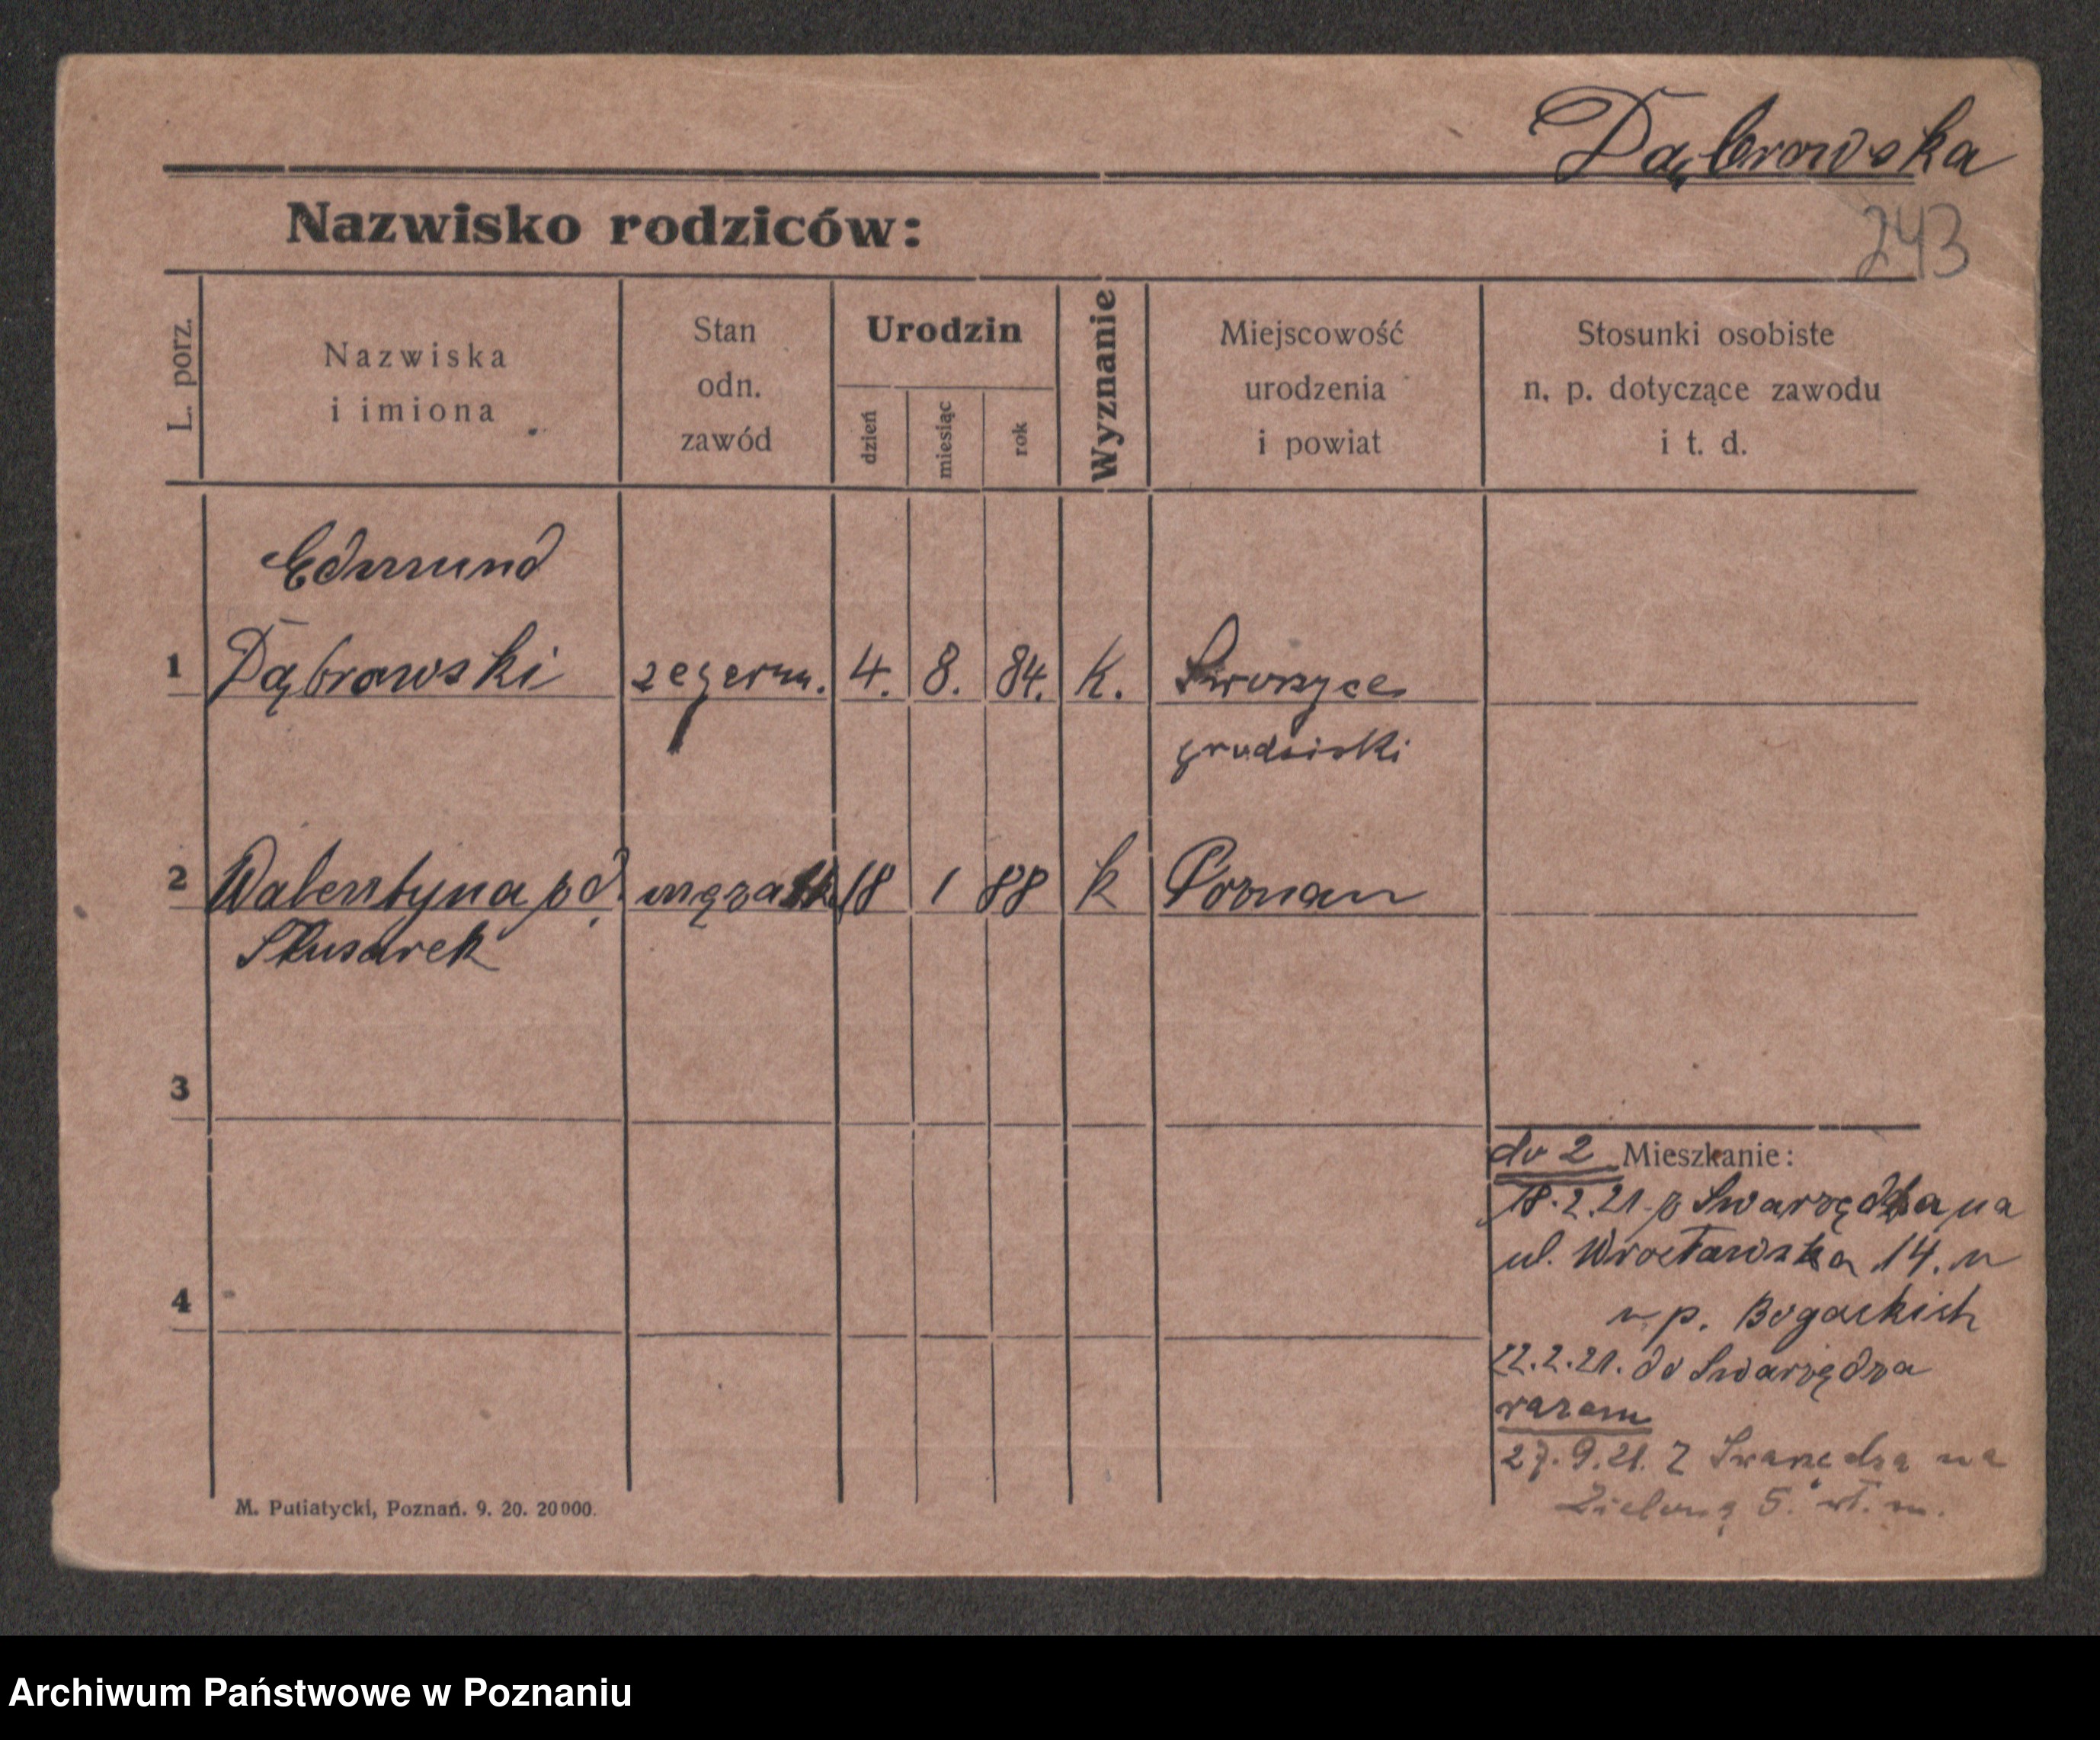 Dąbrowska
243
Nazwisko rodziców:
L. porz.
Nazwiska
i imiona
Stan
odn.
zawód
Urodzin
dzień
miesiąc
rok
Wyznanie
Miejscowość
urodzenia
i powiat
Stosunki osobiste
n. p. dotyczące zawodu
i t. d.
Edmund
1 Dąbrowski zegerm. 4. 8. 84. K.
grodziski
2 Walentyna p d. mężatk 18 1 88 k Poznan
Słusarek
3
do 2 Mieszkanie:
18.2.21. z Swarzędza na
ul. Wrocławska 14. u
u p. Bogackich
4
22.2.21. do Swarzędza
razem
27.9.21. Z Swarzędza na
Zieloną 5. wł. m.
M. Putiatycki, Poznań. 9. 20. 20000.
Archiwum Państwowe w Poznaniu